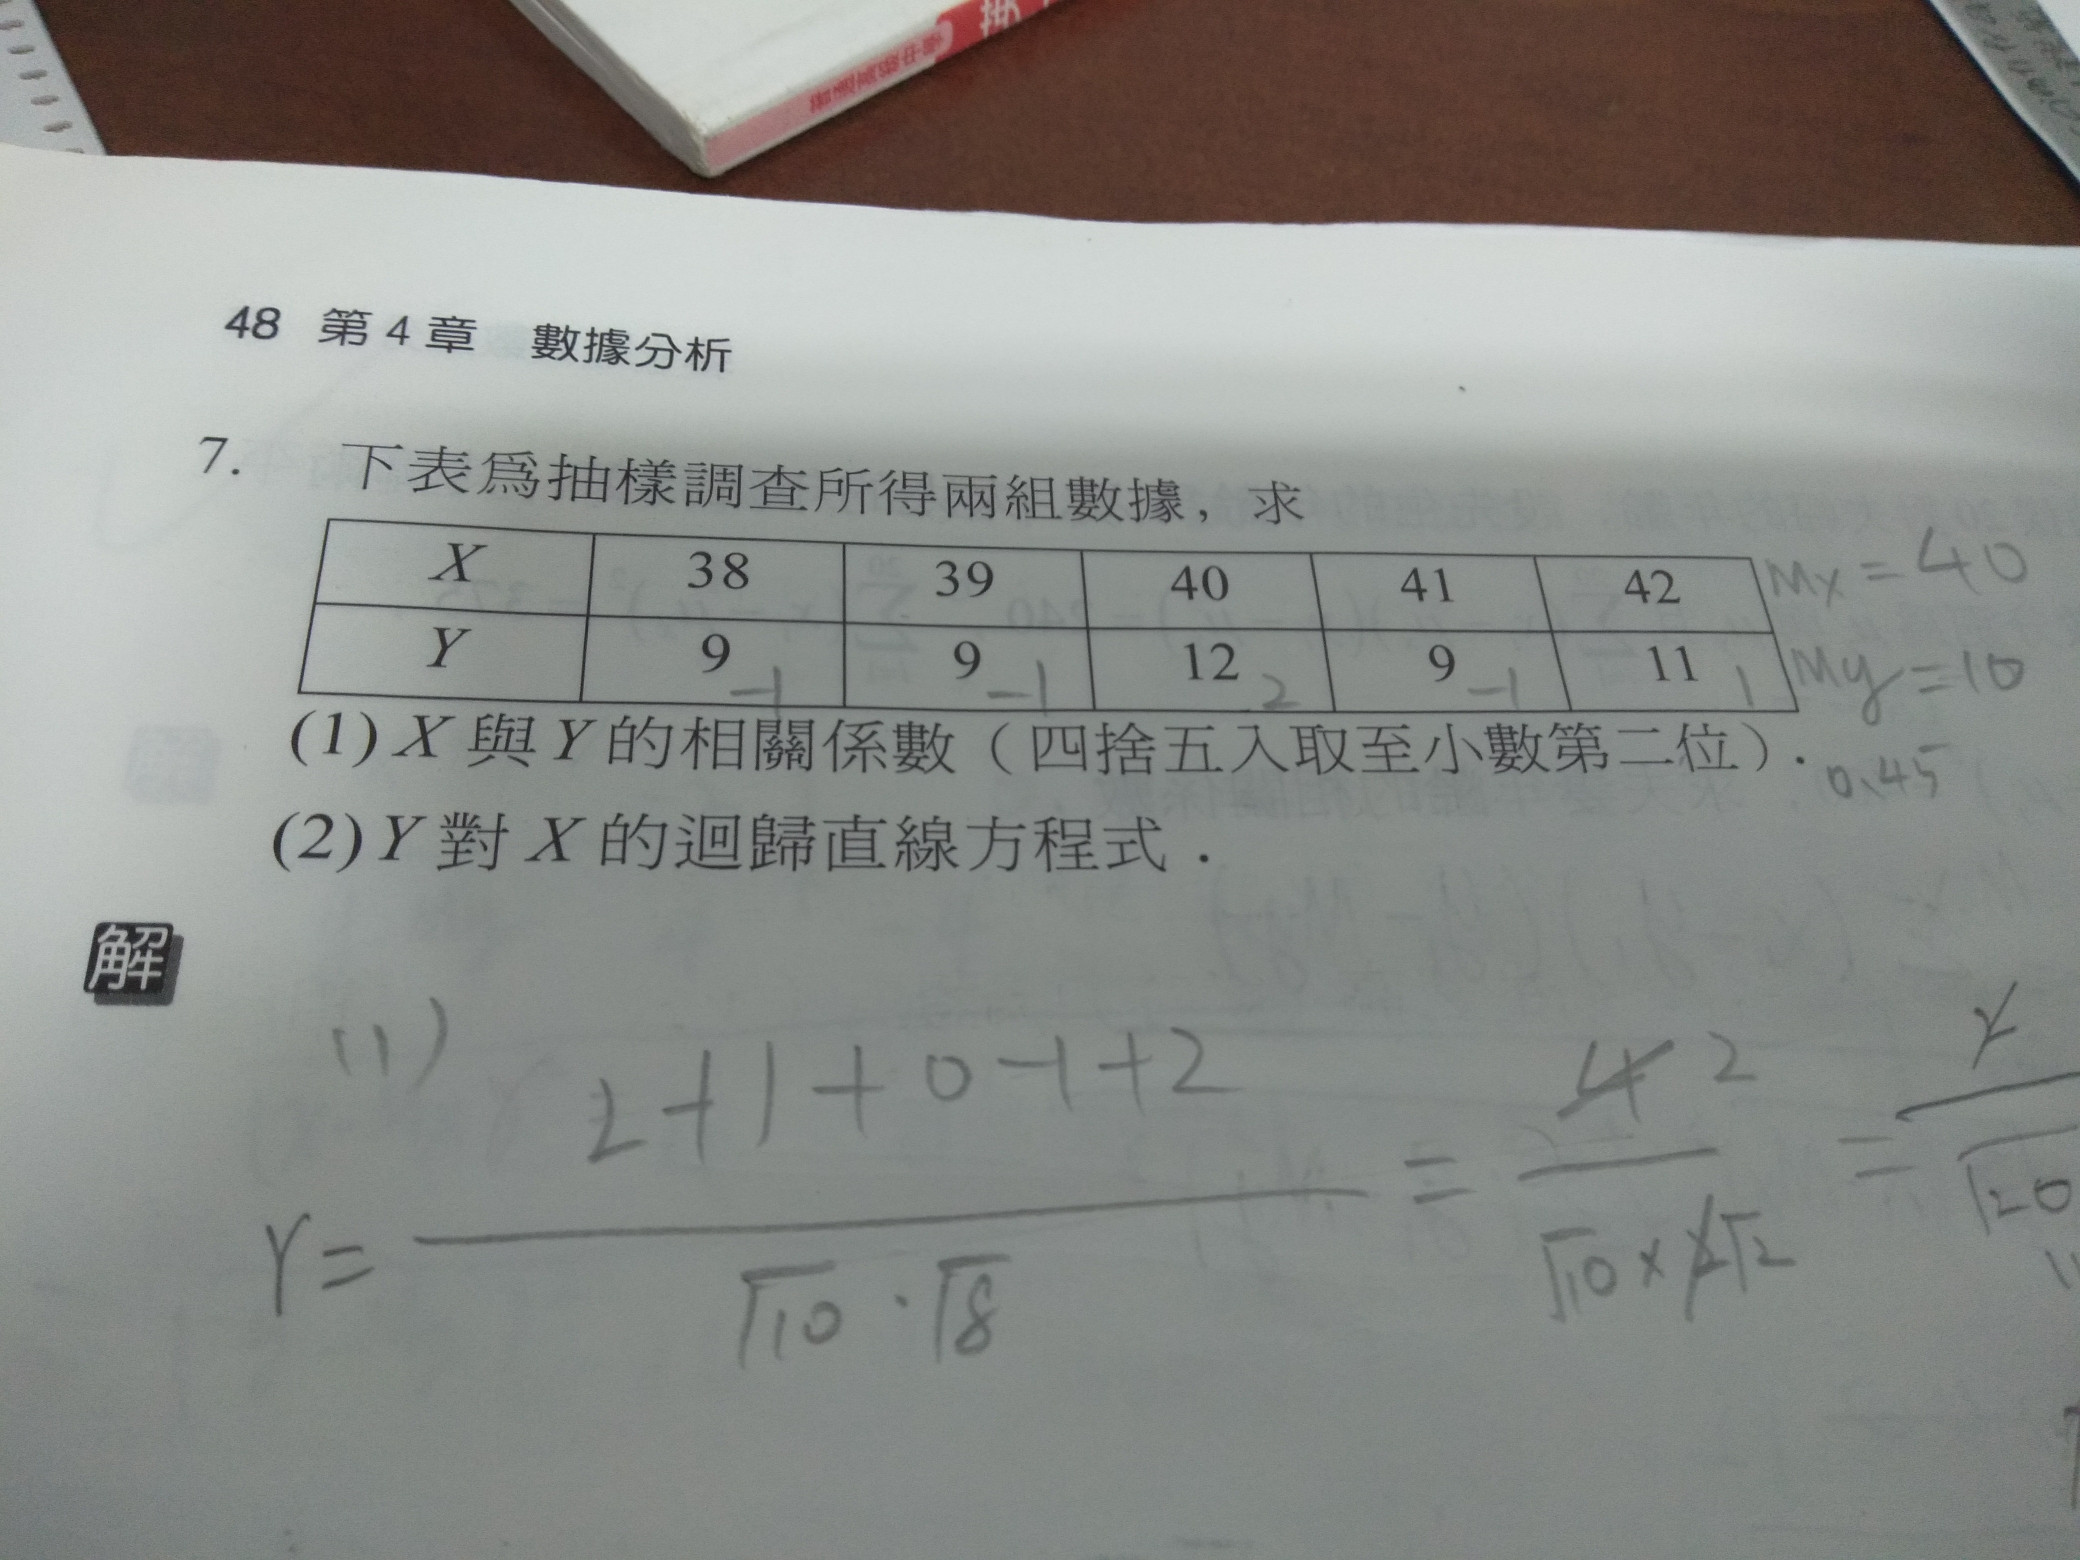 48 第4章 數據分析
7. 下表爲抽樣調查所得兩組數據，求
X 38 39 40 41 42 Mx = 40
Y 9 -1 9 -1 12 2 9 -1 11 1 My = 10
(1) X 與 Y 的相關係數（四捨五入取至小數第二位）. 0.45
(2) Y 對 X 的迴歸直線方程式．
解
(1)
2+1+0-1+2
r = ――― = 4 2 ――― =
√10 · √8 √10 × 2√2 √20